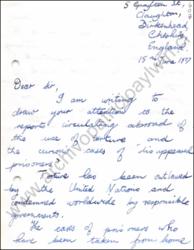 5 Grafton St,
Claughton,
Birkenhead,
Cheshire,
England
15 June 1977
Dear Sir,
I am writing to
draw your attention to the
reports circulating abroad of
the use of torture and
the numerous cases of "disappeared
prisoners".
Torture has been outlawed
by the United Nations and
condemned worldwide by responsible
governments.
The cases of prisoners who
have been taken from home